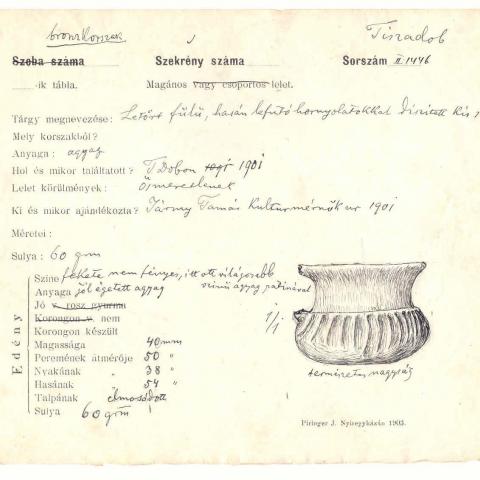 bronzkorszak
Tiszadob
Szoba száma Szekrény száma Sorszám II. 1446
-ik tábla. Magános vagy csoportos lelet.
Tárgy megnevezése: Letört fülű, hasán lefutó hornyolatokkal díszített kis
Mely korszakból?
Anyaga: agyag
Hol és mikor találtatott? T Dobon 1901
Lelet körülmények: Ösmeretlenek
Ki és mikor ajándékozta? Jármy Tamás Kulturmérnök ur 1901
Méretei:
Sulya: 60 grm
Edény
Szine fekete nem fényes, itt ott világosabb
szinü agyag patinával
Anyaga jól égetett agyag
Jó v. rosz gyurma
Korongon v. nem
Korongon készült
Magassága 40 mm
Peremének átmérője 50 "
Nyakának " 38 "
Hasának " 54 "
Talpának elmosódott
Sulya 60 grm
1/1
természetes nagyság
Piringer J. Nyiregyházán 1903.